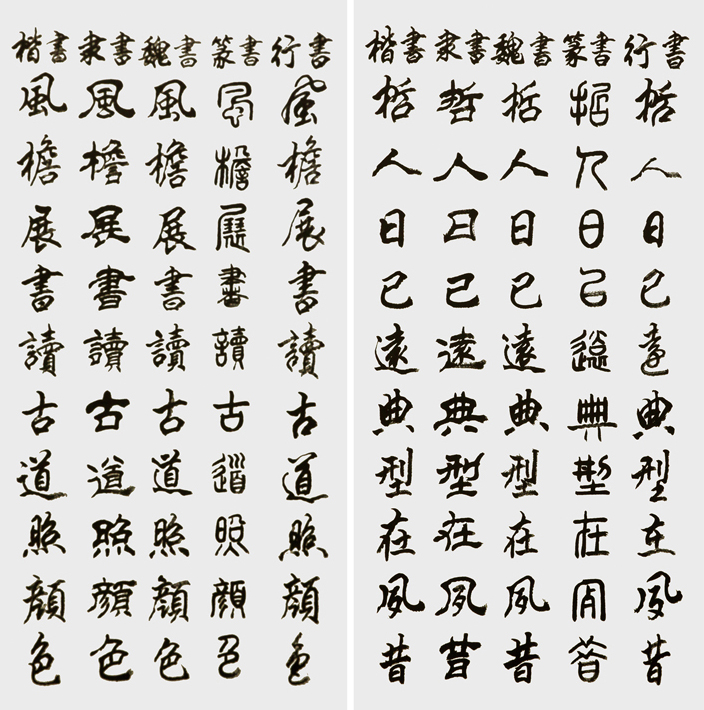 楷書 隶書 魏書 篆書 行書
風 風 風 風 風
檐 檐 檐 檐 檐
展 展 展 展 展
書 書 書 書 書
讀 讀 讀 讀 讀
古 古 古 古 古
道 道 道 道 道
照 照 照 照 照
顔 顔 顔 顔 顔
色 色 色 色 色
楷書 隶書 魏書 篆書 行書
哲 哲 哲 哲 哲
人 人 人 人 人
日 日 日 日 日
已 已 已 已 已
遠 遠 遠 遠 遠
典 典 典 典 典
型 型 型 型 型
在 在 在 在 在
夙 夙 夙 夙 夙
昔 昔 昔 昔 昔